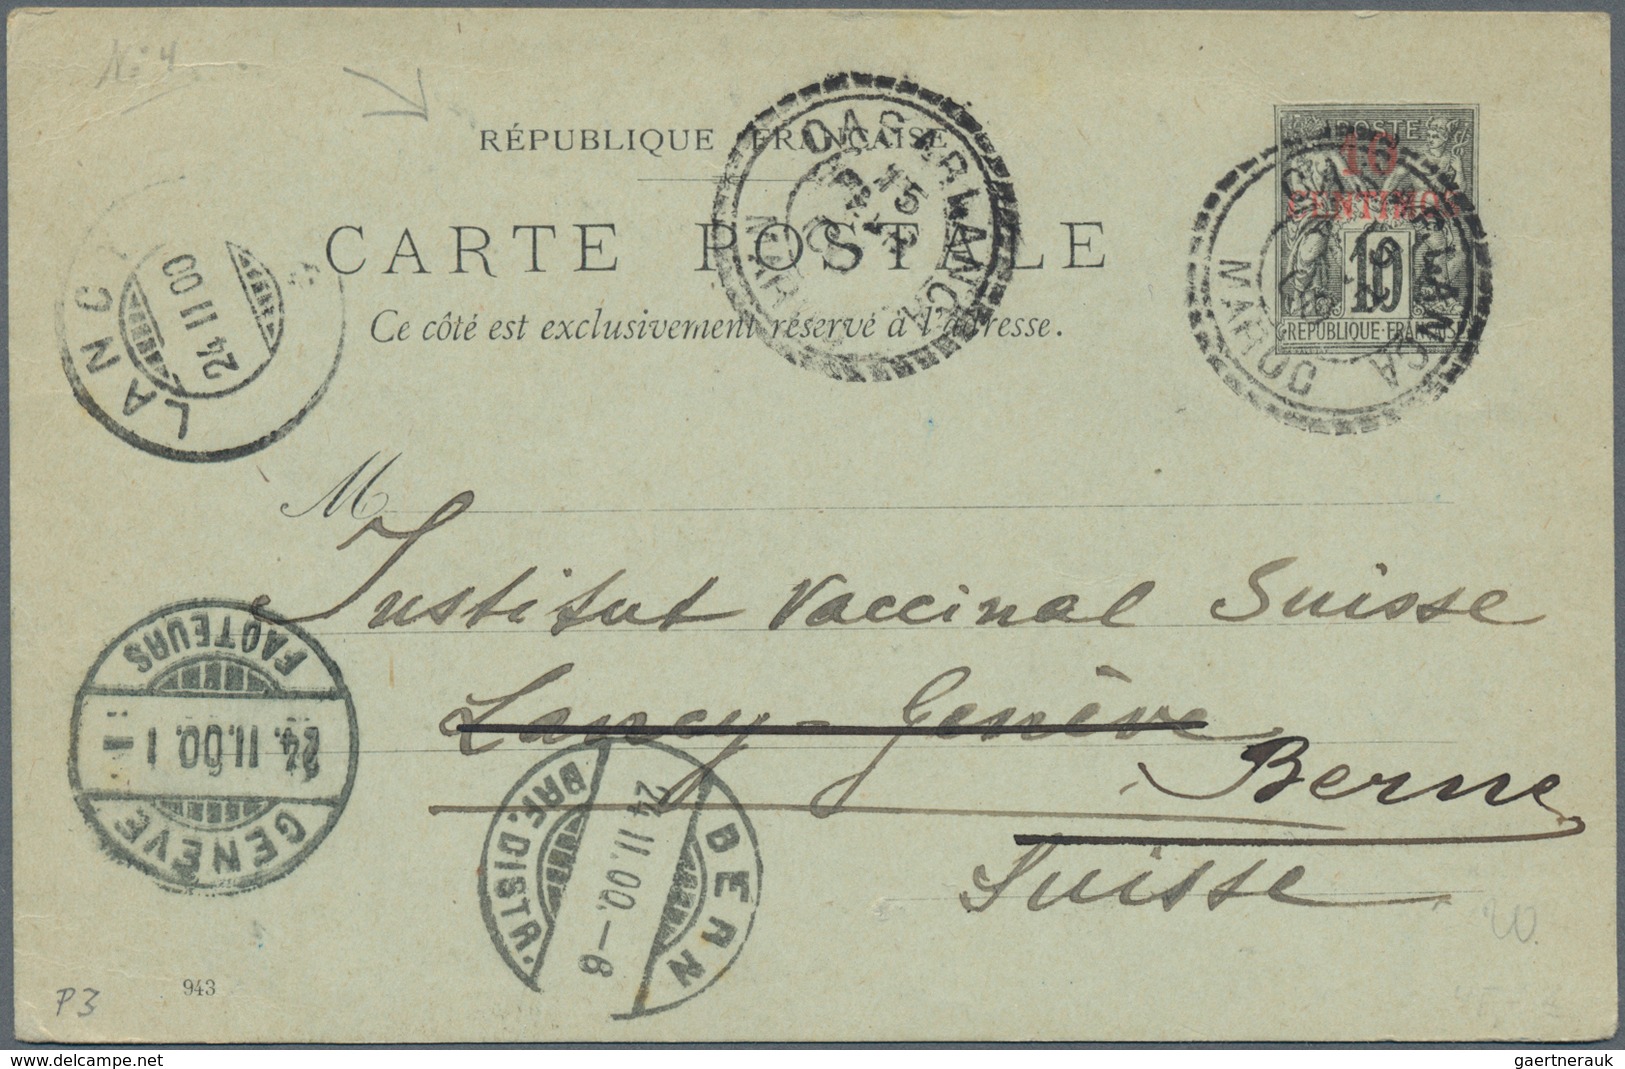 N: 4
RÉPUBLIQUE FRANÇAISE
CARTE POSTALE
Ce côté est exclusivement réservé à l'adresse.
POSTE
10
CENTIMOS
10
REPUBLIQUE·FRANÇAISE
CASABLANCA
15
MAROC
CASABLANCA
MAROC
LANC
24 II 00
M
Institut Vaccinal Suisse
Lancy-Genève
Berne
Suisse
FACTEURS
24. II.00. I
GENÈVE
BERN
24 II.00.–8
BRF. DISTR.
20
P3
943
www.delcampe.net
gaertnerauk